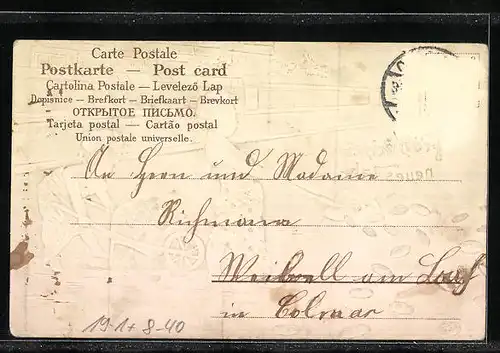 Carte Postale
Postkarte — Post card
Cartolina Postale — Levelező Lap
Dopisnice — Brefkort — Briefkaart — Brevkort
ОТКРЫТОЕ ПИСЬМО.
Tarjeta postal — Cartão postal
Union postale universelle.
An Herrn und Madame
Richmann
am
in Colmar
neues